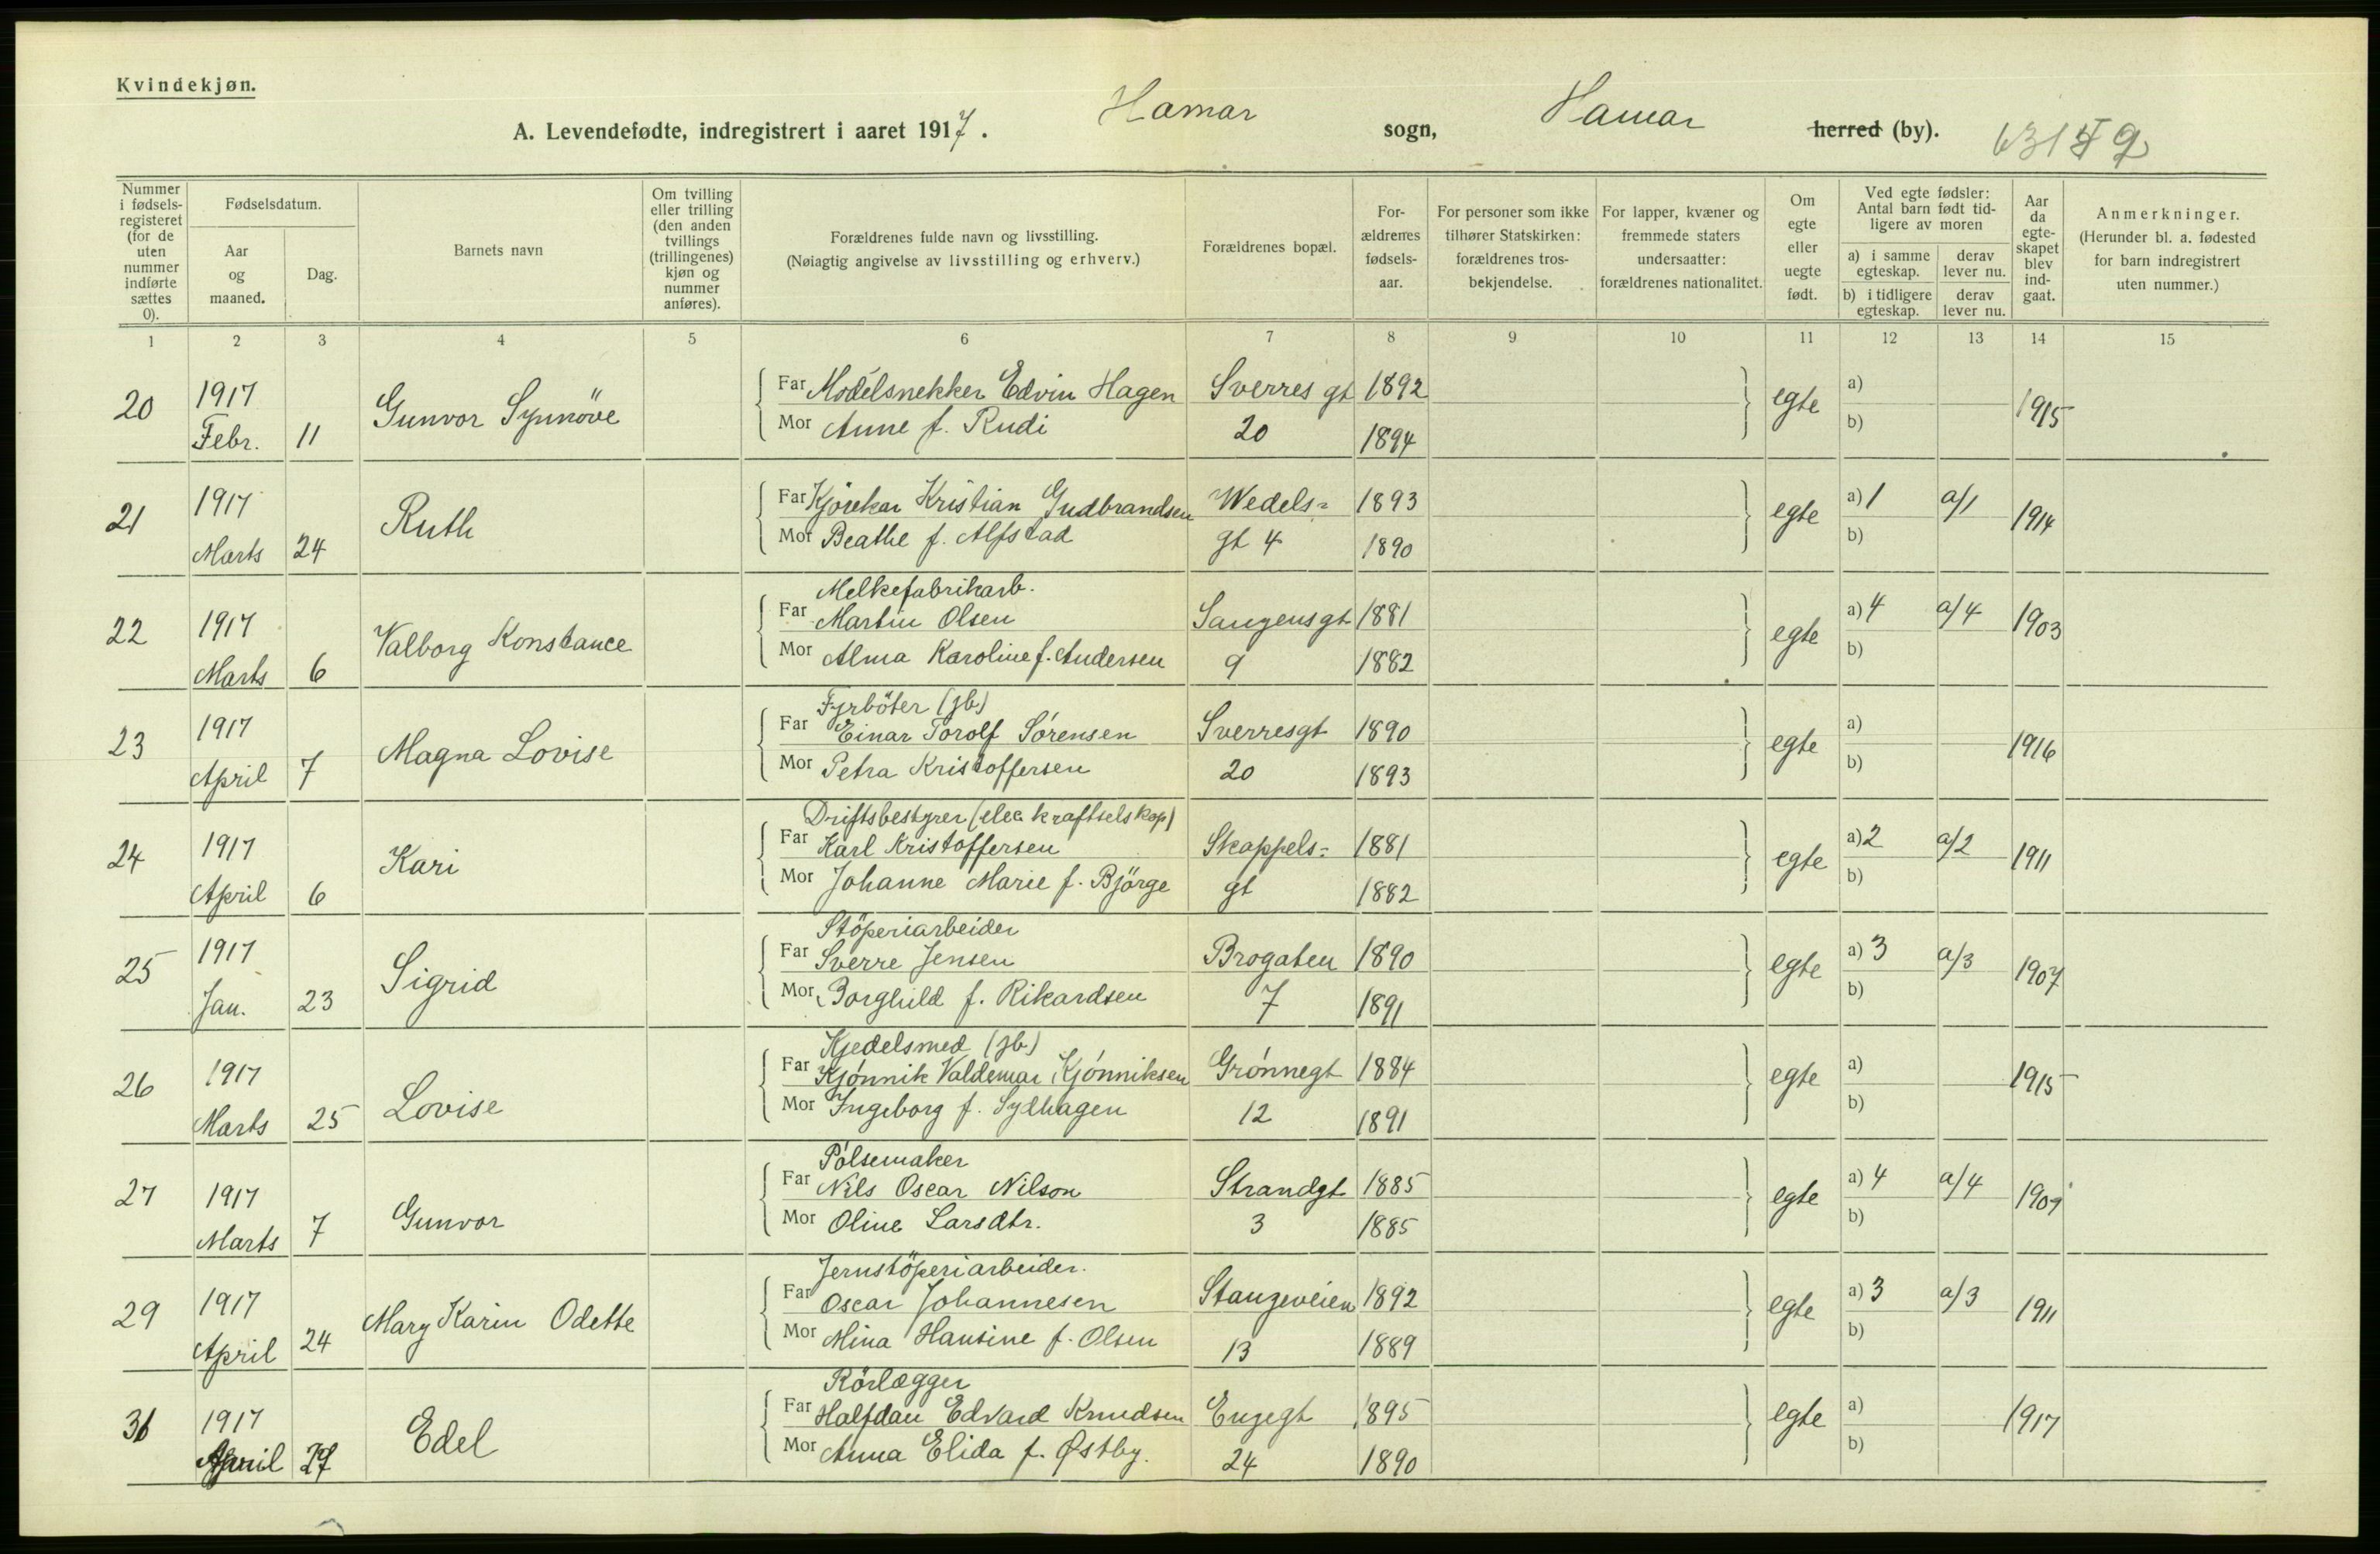 Kvindekjøn.
A. Levendefødte, indregistrert i aaret 1917. Hamar sogn, Hamar herred (by).
Nummer i fødselsregisteret (for de uten nummer indførte sættes 0).
Fødselsdatum.
Aar og maaned.
Dag.
Barnets navn
Om tvilling eller trilling (den anden tvillings (trillingenes) kjøn og nummer anføres).
Forældrenes fulde navn og livsstilling.
(Nøiagtig angivelse av livsstilling og erhverv.)
Forældrenes bopæl.
Forældrenes fødselsaar.
For personer som ikke tilhører Statskirken: forældrenes trosbekjendelse.
For lapper, kvæner og fremmede staters undersaatter: forældrenes nationalitet.
Om egte eller uegte født.
Ved egte fødsler: Antal barn født tidligere av moren
a) i samme egteskap. derav lever nu.
b) i tidligere egteskap. derav lever nu.
Aar da egteskapet blev indgaat.
Anmerkninger.
(Herunder bl. a. fødested for barn indregistrert uten nummer.)
1 2 3 4 5 6 7 8 9 10 11 12 13 14 15
20 1917 Gunvor Synnöve Far Modelsnekker Edvin Hagen Sverres gt 1892 egte a) 1915
Febr. 11 Mor Anne f. Rudi 20 1894 b)
21 1917 Ruth Far Kjörekar Kristian Gudbrandsen Wedels= 1893 egte a) 1 a/1 1914
Marts 24 Mor Beathe f. Alfstad gt 4 1890 b)
Melkefabrikarb.
22 1917 Valborg Konstance Far Martin Olsen Sangensgt 1881 egte a) 4 a/4 1903
Marts 6 Mor Alma Karoline f. Andersen 9 1882 b)
Fyrböter (jb)
23 1917 Magna Lovise Far Einar Torolf Sörensen Sverresgt 1890 egte a) 1916
April 7 Mor Petra Kristoffersen 20 1893 b)
Driftsbestyrer (elec kraftselskap)
24 1917 Kari Far Karl Kristoffersen Skappels= 1881 egte a) 2 a/2 1911
April 6 Mor Johanne Marie f. Björge gt 1882 b)
Stöperiarbeider
25 1917 Sigrid Far Sverre Jensen Brogaten 1890 egte a) 3 a/3 1907
Jan. 23 Mor Borghild f. Rikardsen 7 1891 b)
Kjedelsmed (jb)
26 1917 Lovise Far Kjönnik Valdemar Kjönniksen Grönnegt 1884 egte a) 1915
Marts 25 Mor Ingeborg f. Sydhagen 12 1891 b)
Pölsemaker
27 1917 Gunvor Far Nils Oscar Nilson Strandgt 1885 egte a) 4 a/4 1909
Marts 7 Mor Oline Larsdtr. 3 1885 b)
Jernstöperiarbeider.
29 1917 Mary Karin Odette Far Oscar Johannesen Stangeveien 1892 egte a) 3 a/3 1911
April 24 Mor Mina Hansine f. Olsen 13 1889 b)
Rörlægger
31 1917 Edel Far Halfdan Edvard Knudsen Engegt 1895 egte a) 1917
April Mor Anna Elida f. Østby. 24 1890 b)